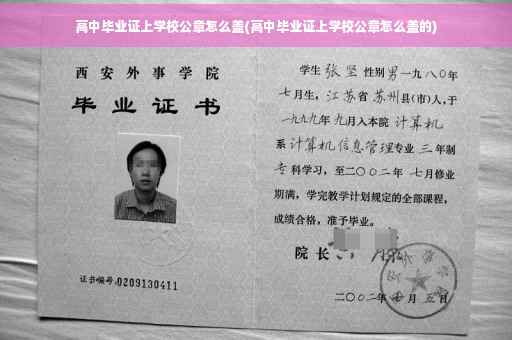 高中毕业证上学校公章怎么盖(高中毕业证上学校公章怎么盖的)
西安外事学院
毕业证书
证书编号:0209130411
学生 张坚 性别男一九八〇年
七月生，江苏省苏州县(市)人，于
一九九九年九月入本院 计算机
系 计算机信息管理专业 三 年制
专科学习，至二〇〇二年 七月修业
期满，学完教学计划规定的全部课程，
成绩合格，准予毕业。
院长
二〇〇二年 月 五日